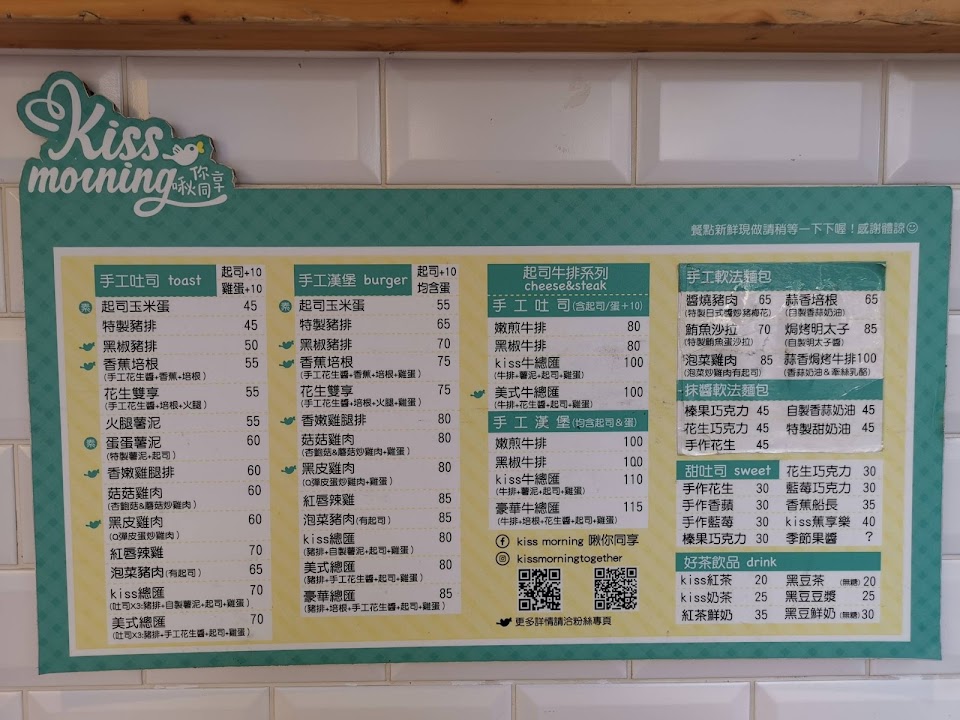 Kiss
morning
啾你同享
餐點新鮮現做請稍等一下下喔!感謝體諒
手工吐司 toast 起司+10
雞蛋+10
素 起司玉米蛋 45
特製豬排 45
黑椒豬排 50
香蕉培根 55
(手工花生醬+香蕉+培根)
花生雙享 55
(手工花生醬+培根+火腿)
火腿薯泥 55
素 蛋蛋薯泥 60
(特製薯泥+起司)
香嫩雞腿排 60
菇菇雞肉 60
(杏鮑菇&蘑菇炒雞肉)
黑皮雞肉 60
(Q彈皮蛋炒雞肉)
紅唇辣雞 70
泡菜豬肉(有起司) 65
kiss總匯 70
(吐司X3:豬排+自製薯泥+起司+雞蛋)
美式總匯 70
(吐司X3:豬排+手工花生醬+起司+雞蛋)
手工漢堡 burger 起司+10
均含蛋
素 起司玉米蛋 55
特製豬排 65
黑椒豬排 70
香蕉培根 75
(手工花生醬+香蕉+培根+雞蛋)
花生雙享 75
(手工花生醬+培根+火腿+雞蛋)
香嫩雞腿排 80
菇菇雞肉 80
(杏鮑菇&蘑菇炒雞肉+雞蛋)
黑皮雞肉 80
(Q彈皮蛋炒雞肉+雞蛋)
紅唇辣雞 85
泡菜豬肉(有起司) 85
kiss總匯 80
(豬排+自製薯泥+起司+雞蛋)
美式總匯 80
(豬排+手工花生醬+起司+雞蛋)
豪華總匯 85
(豬排+培根+手工花生醬+起司+雞蛋)
起司牛排系列
cheese&steak
手工吐司(含起司/蛋+10)
嫩煎牛排 80
黑椒牛排 80
kiss牛總匯 100
(牛排+薯泥+起司+雞蛋)
美式牛總匯 100
(牛排+花生醬+起司+雞蛋)
手工漢堡(均含起司&蛋)
嫩煎牛排 100
黑椒牛排 100
kiss牛總匯 110
(牛排+薯泥+起司+雞蛋)
豪華牛總匯 115
(牛排+培根+花生醬+起司+雞蛋)
kiss morning 啾你同享
kissmorningtogether
更多詳情請洽粉絲專頁
手工軟法麵包
醬燒豬肉 65 蒜香培根 65
(特製日式醬炒豬梅花) (自製香蒜奶油)
鮪魚沙拉 70 焗烤明太子 85
(特製鮪魚蛋沙拉) (自製明太子醬)
泡菜雞肉 85 蒜香焗烤牛排100
(泡菜炒雞肉有起司) (香蒜奶油&牽絲乳酪)
抹醬軟法麵包
榛果巧克力 45 自製香蒜奶油 45
花生巧克力 45 特製甜奶油 45
手作花生 45
甜吐司 sweet 花生巧克力 30
手作花生 30 藍莓巧克力 30
手作香蒜 30 香蕉船長 35
手作藍莓 30 kiss蕉享樂 40
榛果巧克力 30 季節果醬 ?
好茶飲品 drink
kiss紅茶 20 黑豆茶 (無糖)20
kiss奶茶 25 黑豆豆漿 25
紅茶鮮奶 35 黑豆鮮奶(無糖)30